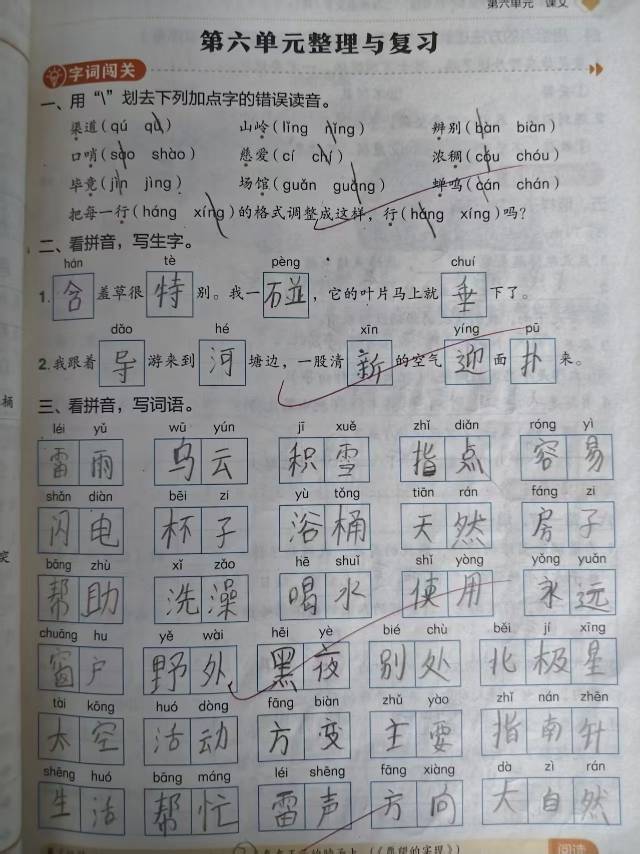 第六单元 课文
第六单元整理与复习
字词闯关
一、用“\”划去下列加点字的错误读音。
渠道(qú qù) 山岭(lǐng nǐng) 辨别(bàn biàn)
口哨(sào shào) 慈爱(cí chí) 浓稠(cóu chóu)
毕竟(jìn jìng) 场馆(guǎn guǎng) 蝉鸣(cán chán)
把每一行(háng xíng)的格式调整成这样,行(háng xíng)吗?
二、看拼音,写生字。
hán tè pèng chuí
1.含羞草很特别。我一碰,它的叶片马上就垂下了。
dǎo hé xīn yíng pū
2.我跟着导游来到河塘边,一股清新的空气迎面扑来。
三、看拼音,写词语。
léi yǔ wū yún jī xuě zhǐ diǎn róng yì
雷雨 乌云 积雪 指点 容易
shǎn diàn bēi zi yù tǒng tiān rán fáng zi
闪电 杯子 浴桶 天然 房子
bāng zhù xǐ zǎo hē shuǐ shǐ yòng yǒng yuǎn
帮助 洗澡 喝水 使用 永远
chuāng hu yě wài hēi yè bié chù běi jí xīng
窗户 野外 黑夜 别处 北极星
tài kōng huó dòng fāng biàn zhǔ yào zhǐ nán zhēn
太空 活动 方变 主要 指南针
shēng huó bāng máng léi shēng fāng xiàng dà zì rán
生活 帮忙 雷声 方向 大自然
阅读